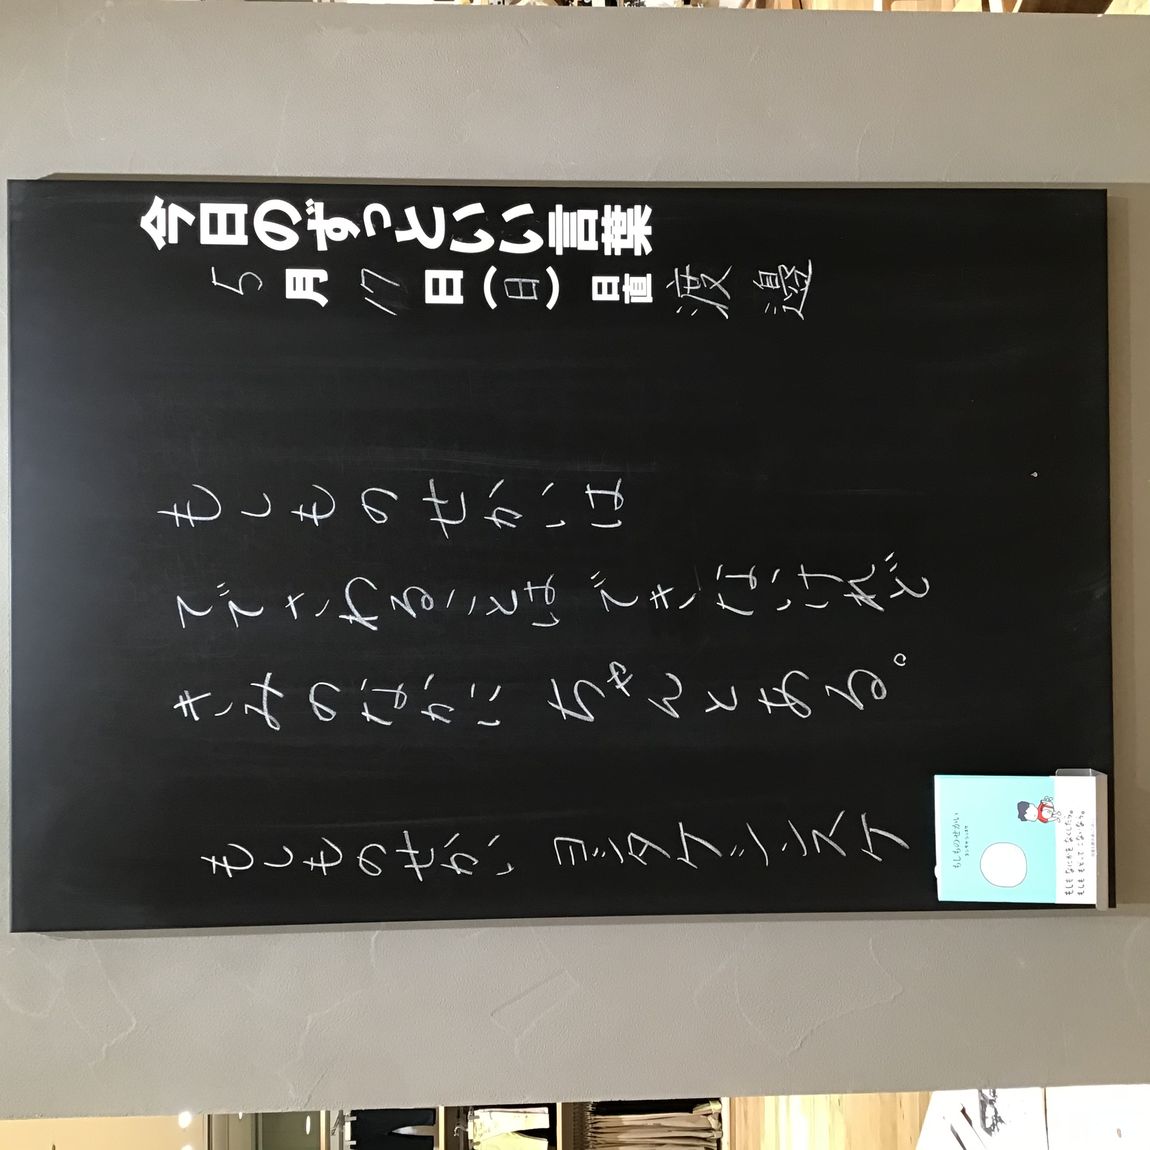 今日のずっといい言葉
5月17日(日) 日直 渡邊
もしものせかいは
てでさわることは できないけれど
きみのなかに ちゃんとある。
もしものせかい ヨシタケシンスケ
もしものせかい
ヨシタケシンスケ
もしも なにかを なくしたら。
もしも もどって こないなら。